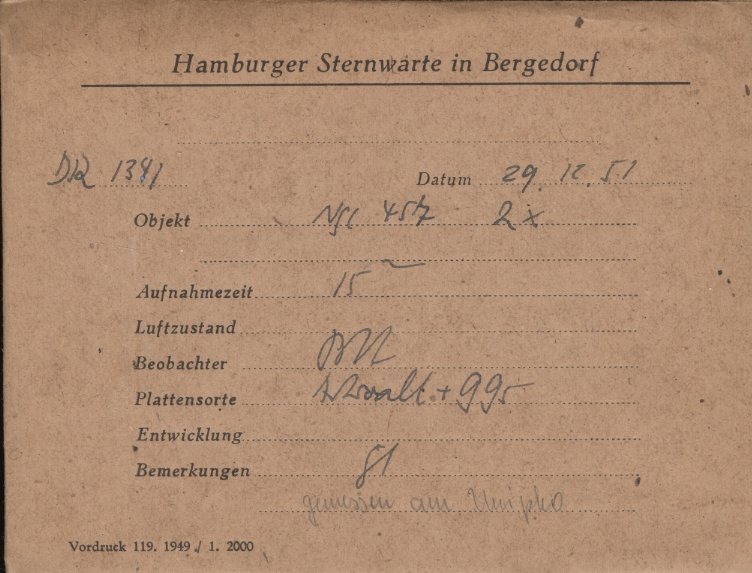 Hamburger Sternwarte in Bergedorf
DR 1341 Datum 29. 12. 51
Objekt NGC 457 2x
Aufnahmezeit 15
Luftzustand
Beobachter
Plattensorte + 995
Entwicklung
Bemerkungen
gemessen am
Vordruck 119. 1949 / 1. 2000